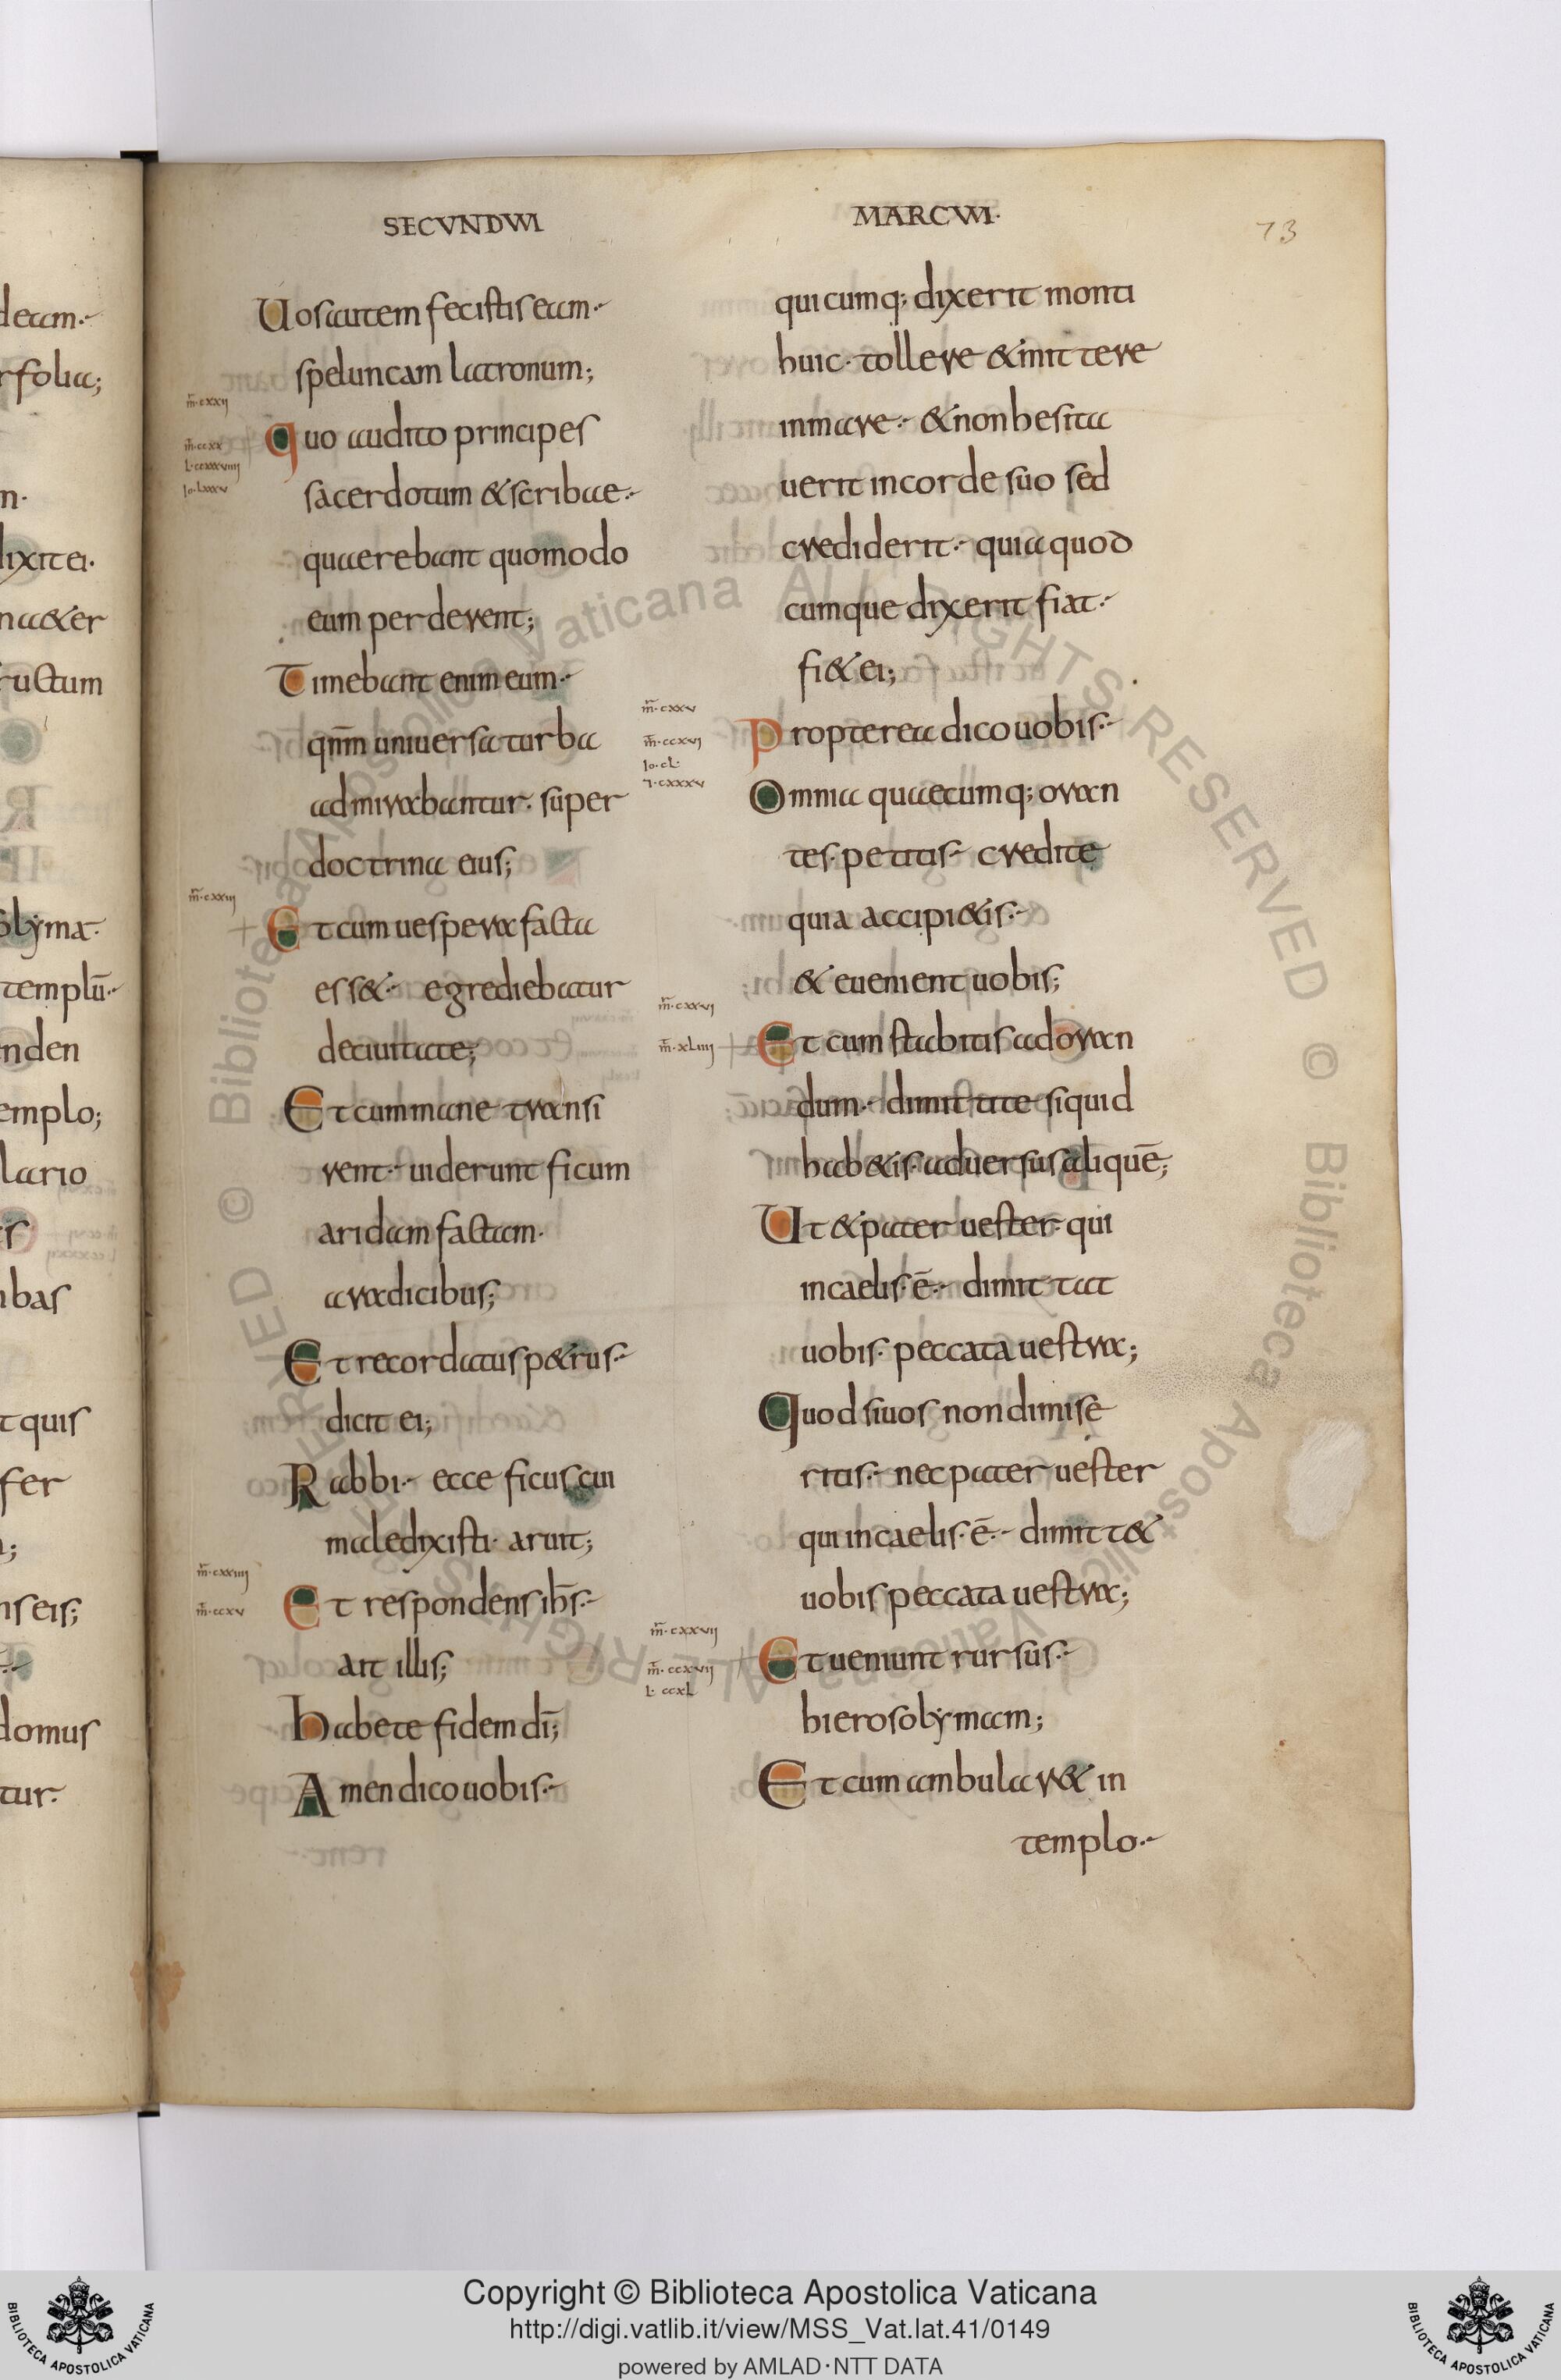 SECVNDVM MARCVM·
73
Uos autem fecistis eam·
speluncam latronum;
m̄·cxxij
m̄·ccxx
L·ccxxxviiij
Io·Lxxxv
Quo audito principes
sacerdotum & scribae·
quaerebant quomodo
eum perderent;
Timebant enim eum·
qnm̄ uniuersa turba
admirabantur· super
doctrina eius;
m̄·cxxiij
Et cum uespera facta
ess&· egrediebatur
deciuitate;
Et cum mane transi
rent· uiderunt ficum
aridam factam·
aradicibus;
Et recordatus p&rus·
dicit ei;
Rabbi· ecce ficus cui
maledixisti· aruit;
m̄·cxxiiij
m̄·ccxv
Et respondens ihs̄·
ait illis;
Habete fidem dī;
Amen dico uobis·
quicumq; dixerit monti
huic· tollere & mittere
in mare· & non hesita
uerit in corde suo sed
crediderit· quia quod
cumque dixerit fiat·
fi& ei;
m̄·cxxv
m̄·ccxvj
Io·cL·
Propterea dico uobis·
Omnia quaecumq; oran
tes· petitis· credite
quia accipi&is·
& euenient uobis;
m̄·cxxvj
m̄·xLiiij
Et cum stabitis ad oran
dum· dimittite siquid
hab&is· aduersus aliquē;
Ut & pater uester· qui
in caelis· ē· dimittat
uobis· peccata uestra;
Quod si uos non dimise
ritis· nec pater uester
qui in caelis· ē· dimitt&
uobis peccata uestra;
m̄·cxxvij
m̄·ccxvij
L·ccxL
Et ueniunt rursus·
hierosolymam;
Et cum ambular& in
templo·
Copyright © Biblioteca Apostolica Vaticana
http://digi.vatlib.it/view/MSS_Vat.lat.41/0149
powered by AMLAD·NTT DATA
BIBLIOTECA APOSTOLICA VATICANA
BIBLIOTECA APOSTOLICA VATICANA